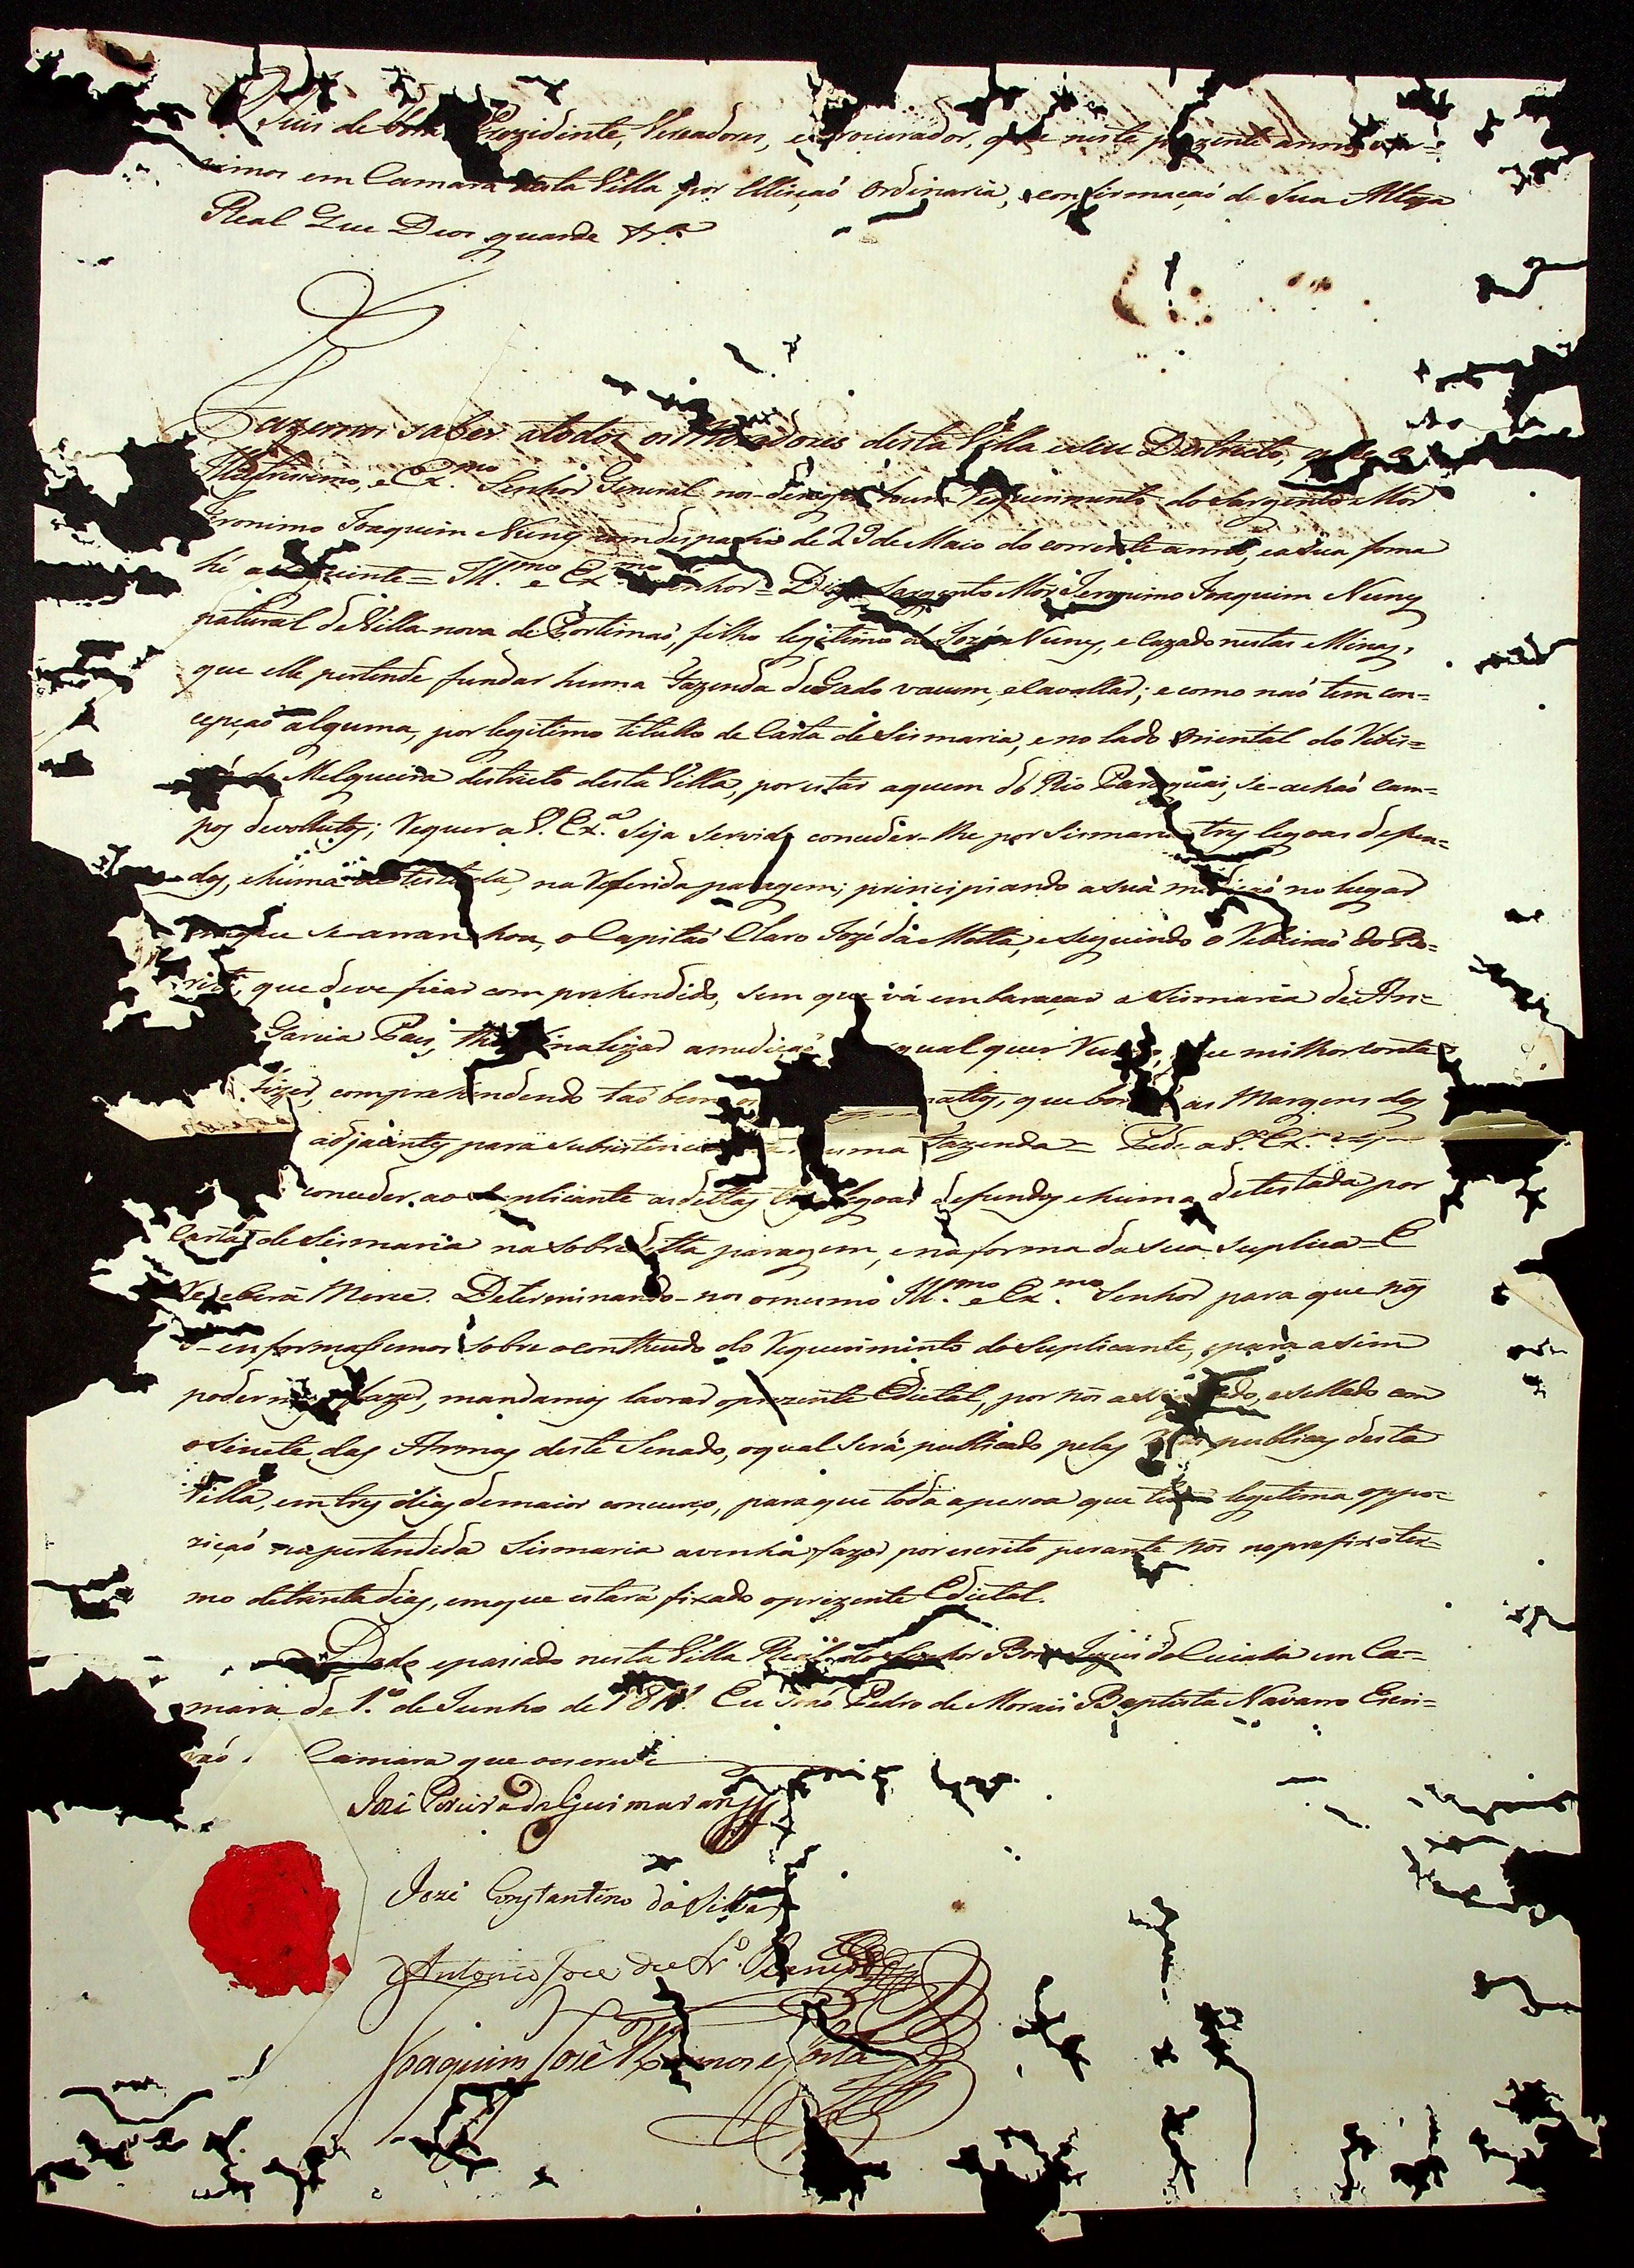 Juis de fora Prezidente, Vereadores, e Procurador, que neste prezente anno ser=
vimos em Camara desta Villa por Elleiçaõ Ordinaria, e confirmaçaõ de Sua Alteza
Real Que Deos guarde &.ª
Fazemos saber atodos os Moradores desta Villa eseu Destricto, que o
Illustrissimo, e Ex.mo Senhor General nos derigio hum Requerimento do Sargento Mór
Jeronimo Joaquim Nunes com despacho de 29 de Maio do corrente anno, easua forma
hé a seguinte = Ill.mo e Ex.mo Senhor = Diz o Sargento Mór Jeronimo Joaquim Nunes
natural de Villa nova de Portimaõ, filho legitimo de Jozé Nunes, e Cazado nestas Minas,
que elle pertende fundar huma Fazenda de Gado vacum, eCavallar; e como naõ tem con=
cepçaõ alguma, por legitimo titullo de Carta de Sismaria, e no lado Oriental do Ribei=
de Melgueira destricto desta Villa, por estar aquem do Rio Paraguai, se-achaõ Cam=
pos devollutos; Requer a V. Ex.ª seja servido conceder-lhe por Sismaria tres legoas defun=
dos, ehuma de testada, na Referida paragem; principiando asua mediçaõ no lugar
em que se arranchou, o Capitaõ Claro Jozé da Motta, eseguindo o Ribeiraõ do Bo=
riti, que deve ficar comprehendido, sem que vá embaraçar a Sismaria de An=
Garcia Paes, finalizar a medicaõ qualquer Rumo, que milhor conta
fizer, comprehendendo taõ bem os mattos, que bordaõ as Margens dos
adjacentes para subsistencia huma Fazenda = Pede a V.Ex.ª
conceder ao Suplicante as dittas tres legoas defundos ehuma detestada por
Carta de Sismaria na sobreditta paragem, e na forma da sua suplica = E
Receberá Merce. Determinando-nos o mesmo Ill.mo e Ex.mo Senhor para que nós
o-enformassemos sobre o contheudo do Requerimento do Suplicante, epara asim
podermos fazer, mandamos lavrar oprezente Edictal, por nós assignado, esellado com
o Sinete das Armas deste Senado, oqual será publicado pelas Ruas publicas desta
Villa, em tres dias demaior concurço, para que toda apesoa que tiver legitima oppo=
ziçaõ na pertendida Sismaria avenha fazer por escrito perante nós no prefixo ter=
mo detrinta dias, emque estará fixado oprezente Edictal.
Dado epassado nesta Villa Real do Senhor Bom Jezus do Cuiaba em Ca=
mara de 1.º de Junho de 181 Eu Joaõ Pedro de Moraes Baptista Navarro Escri=
vaõ Camara que oescrevi
Joze Pereira da Guimaraens
Joze Constantino da Silva
Antonio Joce de
Joaquim José Ramos e Costa